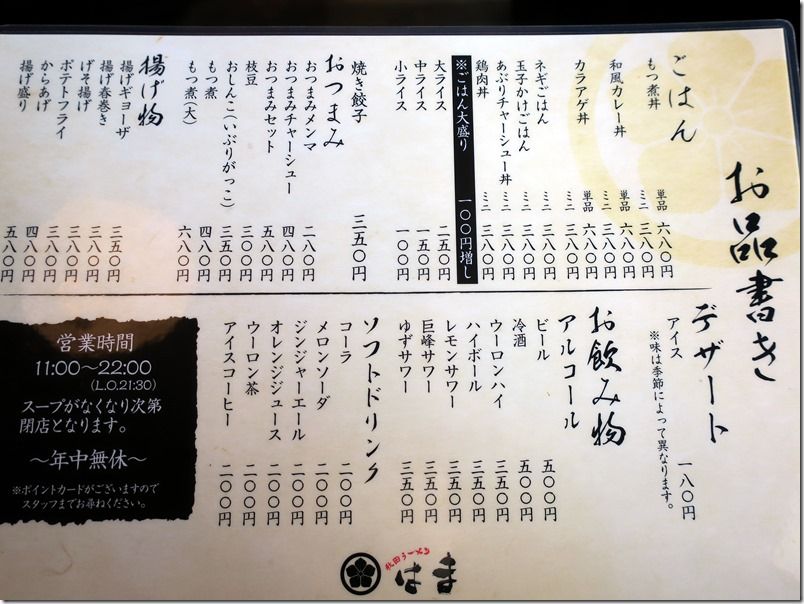 お品書き
ごはん
もつ煮丼 単品 六八〇円
ミニ 三八〇円
和風カレー丼 単品 六八〇円
ミニ 三八〇円
カラアゲ丼 単品 六八〇円
ミニ 三八〇円
ネギごはん ミニ 三八〇円
玉子かけごはん ミニ 三八〇円
あぶりチャーシュー丼 ミニ 三八〇円
鶏肉丼 ミニ 三八〇円
※ごはん大盛り 一〇〇円増し
大ライス 二五〇円
中ライス 一五〇円
小ライス 一〇〇円
焼き餃子 三五〇円
おつまみ
おつまみメンマ 二八〇円
おつまみチャーシュー 四八〇円
おつまみセット 五八〇円
枝豆 三〇〇円
おしんこ(いぶりがっこ) 三五〇円
もつ煮 四八〇円
もつ煮(大) 六八〇円
揚げ物
揚げギョーザ 三五〇円
揚げ春巻き 三八〇円
げそ揚げ 三八〇円
ポテトフライ 三八〇円
からあげ 四八〇円
揚げ盛り 五八〇円
デザート
アイス 一八〇円
※味は季節によって異なります。
お飲み物
アルコール
ビール 五〇〇円
冷酒 五〇〇円
ウーロンハイ 三五〇円
ハイボール 三五〇円
レモンサワー 三五〇円
巨峰サワー 三五〇円
ゆずサワー 三五〇円
ソフトドリンク
コーラ 二〇〇円
メロンソーダ 二〇〇円
ジンジャーエール 二〇〇円
オレンジジュース 二〇〇円
ウーロン茶 二〇〇円
アイスコーヒー 二〇〇円
営業時間
11:00〜22:00
(L.O.21:30)
スープがなくなり次第
閉店となります。
〜年中無休〜
※ポイントカードがございますので
スタッフまでお尋ねください。
秋田ラーメン
はま